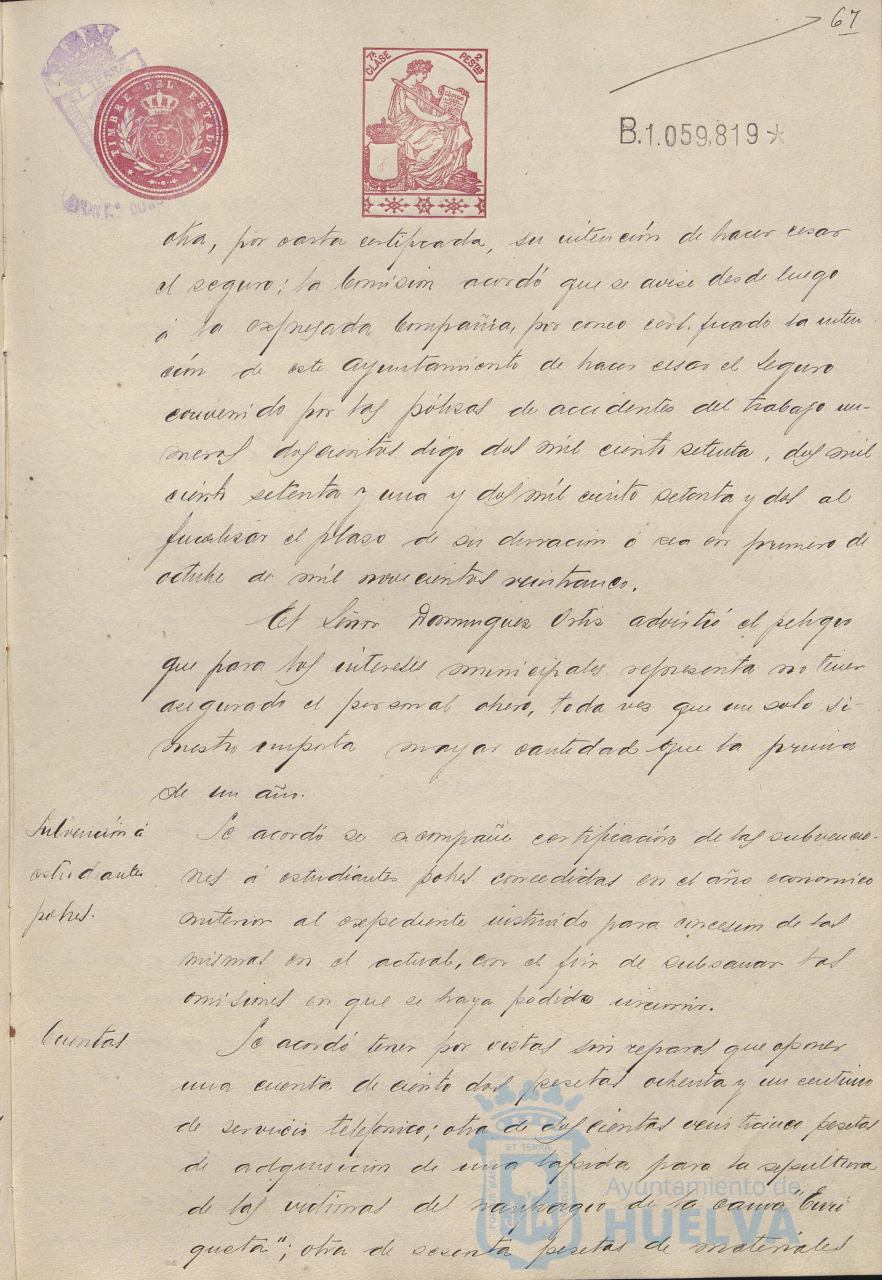 67
TIMBRE DEL ESTADO
7ª CLASE
2 PESTAS
B.1.059.819*
otra, por carta certificada, su intención de hacer cesar
el seguro; la Comisión acordó que se avise desde luego
á la expresada Compañia, por correo certificado la inten-
ción de este Ayuntamiento de hacer cesar el seguro
convenido por las pólizas de accidentes del trabajo nu-
meros doscientos digo dos mil ciento setenta, dos mil
ciento setenta y una y dos mil ciento setenta y dos al
finalizar el plazo de su duración ó sea en primero de
octubre de mil novecientos veinticinco.
El Señor Dominguez Ortiz advirtió el peligro
que para los intereses municipales representa no tener
asegurado el personal obrero, toda vez que un solo si-
niestro importa mayor cantidad que la prima
de un año.
Subvención á
estudiantes
pobres.
Se acordó se acompañe certificación de las subvencio-
nes á estudiantes pobres concedidas en el año economico
anterior al expediente instruido para concesion de las
mismas en el actual, con el fin de subsanar las
omisiones en que se haya podido incurrir.
Cuentas
Se acordó tener por vistas sin reparos que oponer
una cuenta de ciento dos pesetas ochenta y un centimo
de servicio telefonico; otra de doscientas veinticinco pesetas
de adquisición de una lapida para la sepultura
de las victimas del naufragio de la canoa "Enri
queta"; otra de sesenta pesetas de materiales
Ayuntamiento de
HUELVA